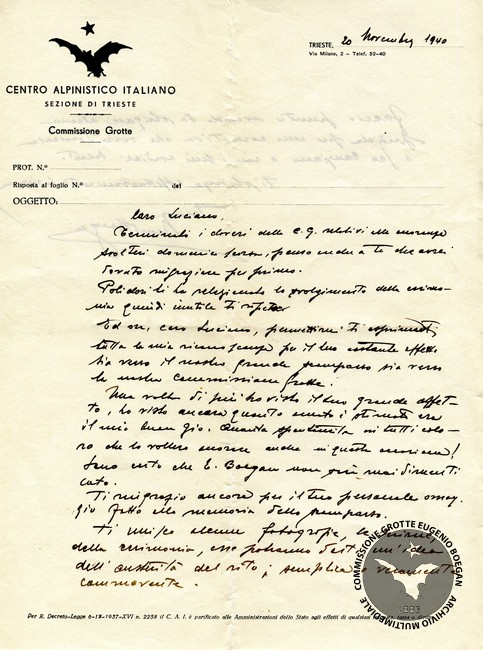 CENTRO ALPINISTICO ITALIANO
SEZIONE DI TRIESTE
Commissione Grotte
TRIESTE, 20 Novembre 1940
Via Milano, 2 - Telef. 52-40
PROT. N.º
Risposta al foglio N.º del
OGGETTO:
Caro Luciano,
Terminati i doveri della C.G. relativi alle
svoltesi domenica scorsa, penso anche a te che avrei
dovuto ringraziare per primo.
Polidori ti ha relazionato lo svolgimento della cerimo-
nia quindi inutile ti ripeta.
Ed ora, caro Luciano, permettimi ti
tutta la mia riconoscenza per il tuo costante affetto
sia verso il nostro grande scomparso sia verso
la nostra commissione Grotte.
Una volta di più ho visto il tuo grande affet-
to, ho visto ancora quanto amato e stimato era
il mio buon zio. Quanta spontaneità in tutti colo-
ro che lo vollero onorare anche in questa occasione!
Sono certo che E. Boegan non sarà mai dimenti
cato.
Ti ringrazio ancora per il tuo personale omag-
gio fatto alla memoria dello scomparso.
Ti unisco alcune fotografie,
della cerimonia, esse potranno darti un'idea
dell'austerità del rito; semplice e veramente
commovente.
Per R. Decreto-Legge 6-12-1937-XVI n. 2258 il C. A. I. è parificato alle Amministrazioni dello Stato agli effetti di qualsiasi
COMMISSIONE GROTTE EUGENIO BOEGAN
ARCHIVIO MULTIMEDIALE
1883